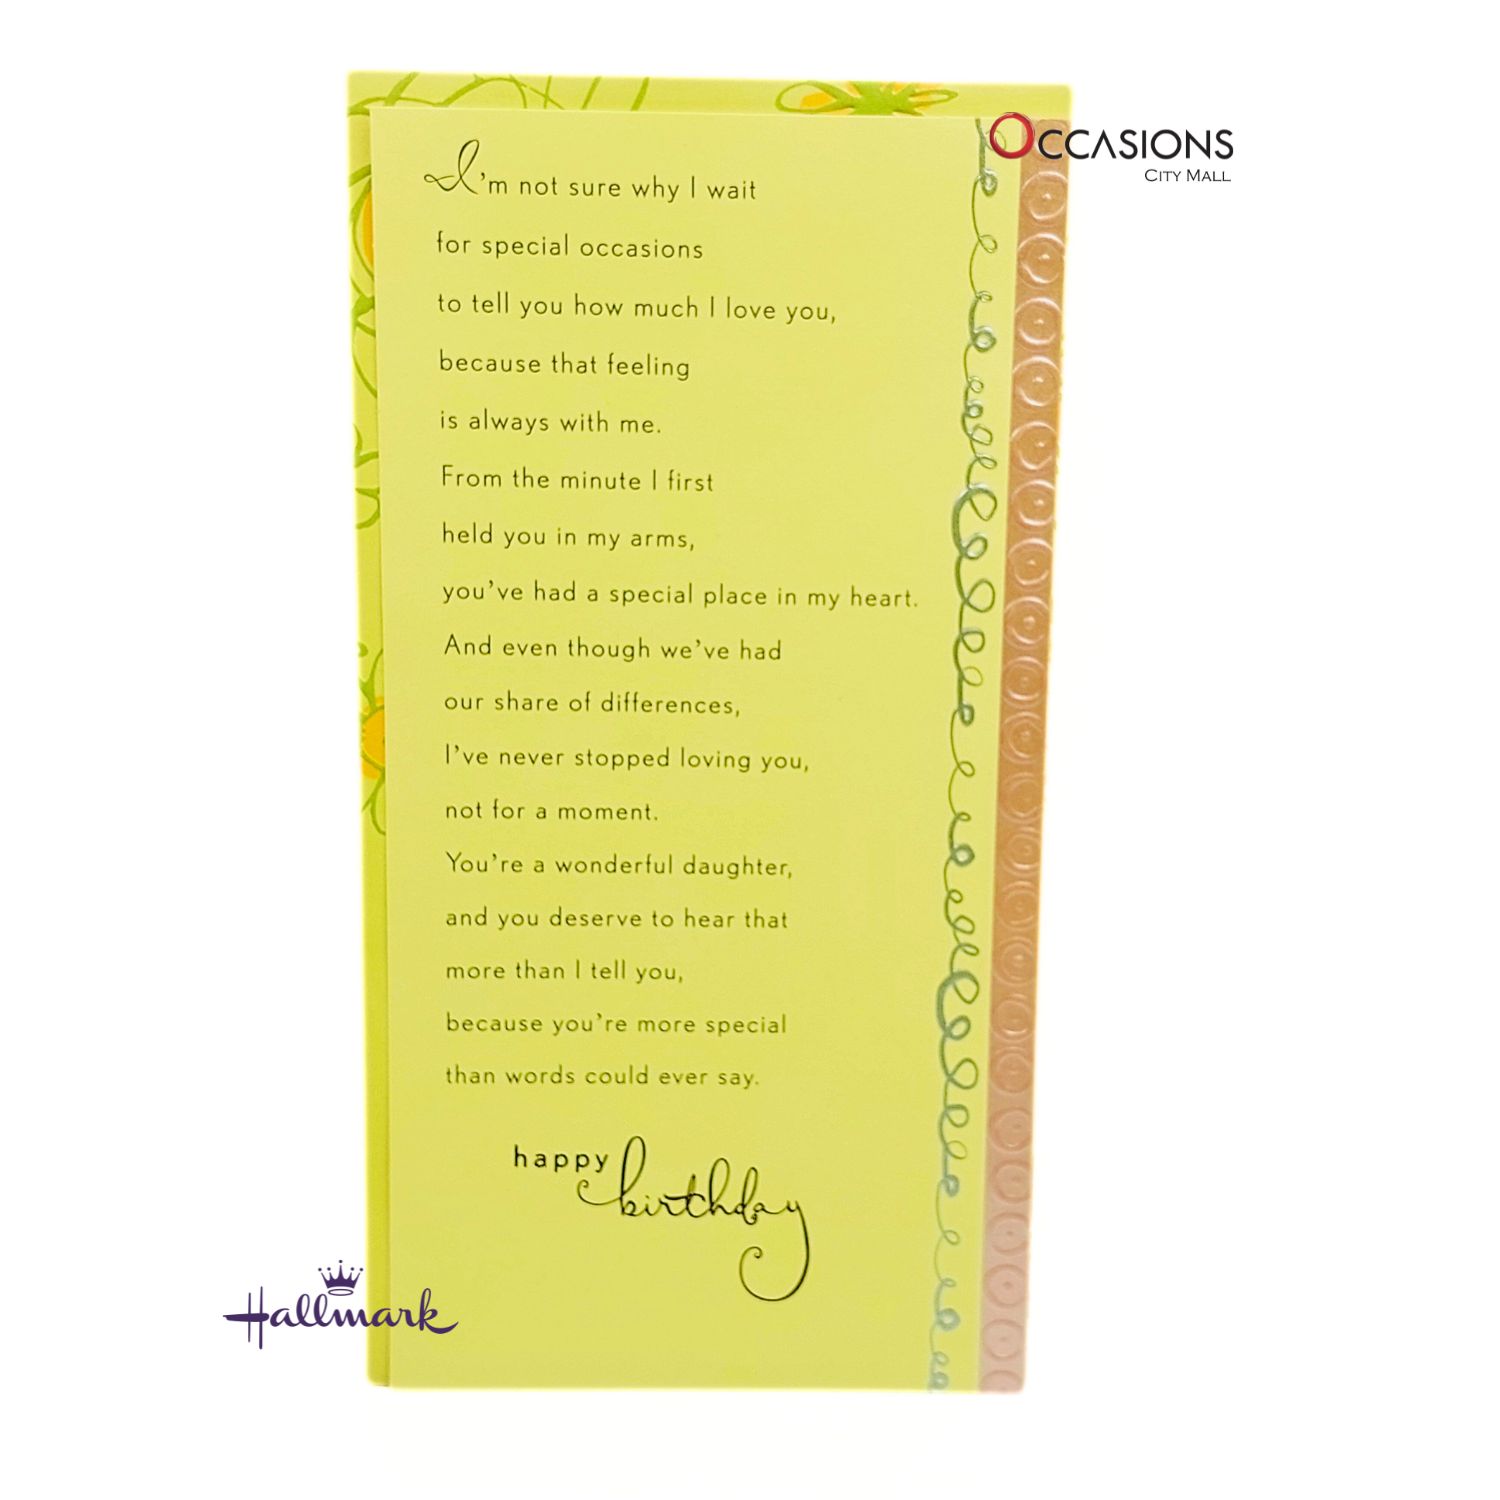 OCCASIONS
CITY MALL
I'm not sure why I wait
for special occasions
to tell you how much I love you,
because that feeling
is always with me.
From the minute I first
held you in my arms,
you've had a special place in my heart.
And even though we've had
our share of differences,
I've never stopped loving you,
not for a moment.
You're a wonderful daughter,
and you deserve to hear that
more than I tell you,
because you're more special
than words could ever say.
happy birthday
Hallmark